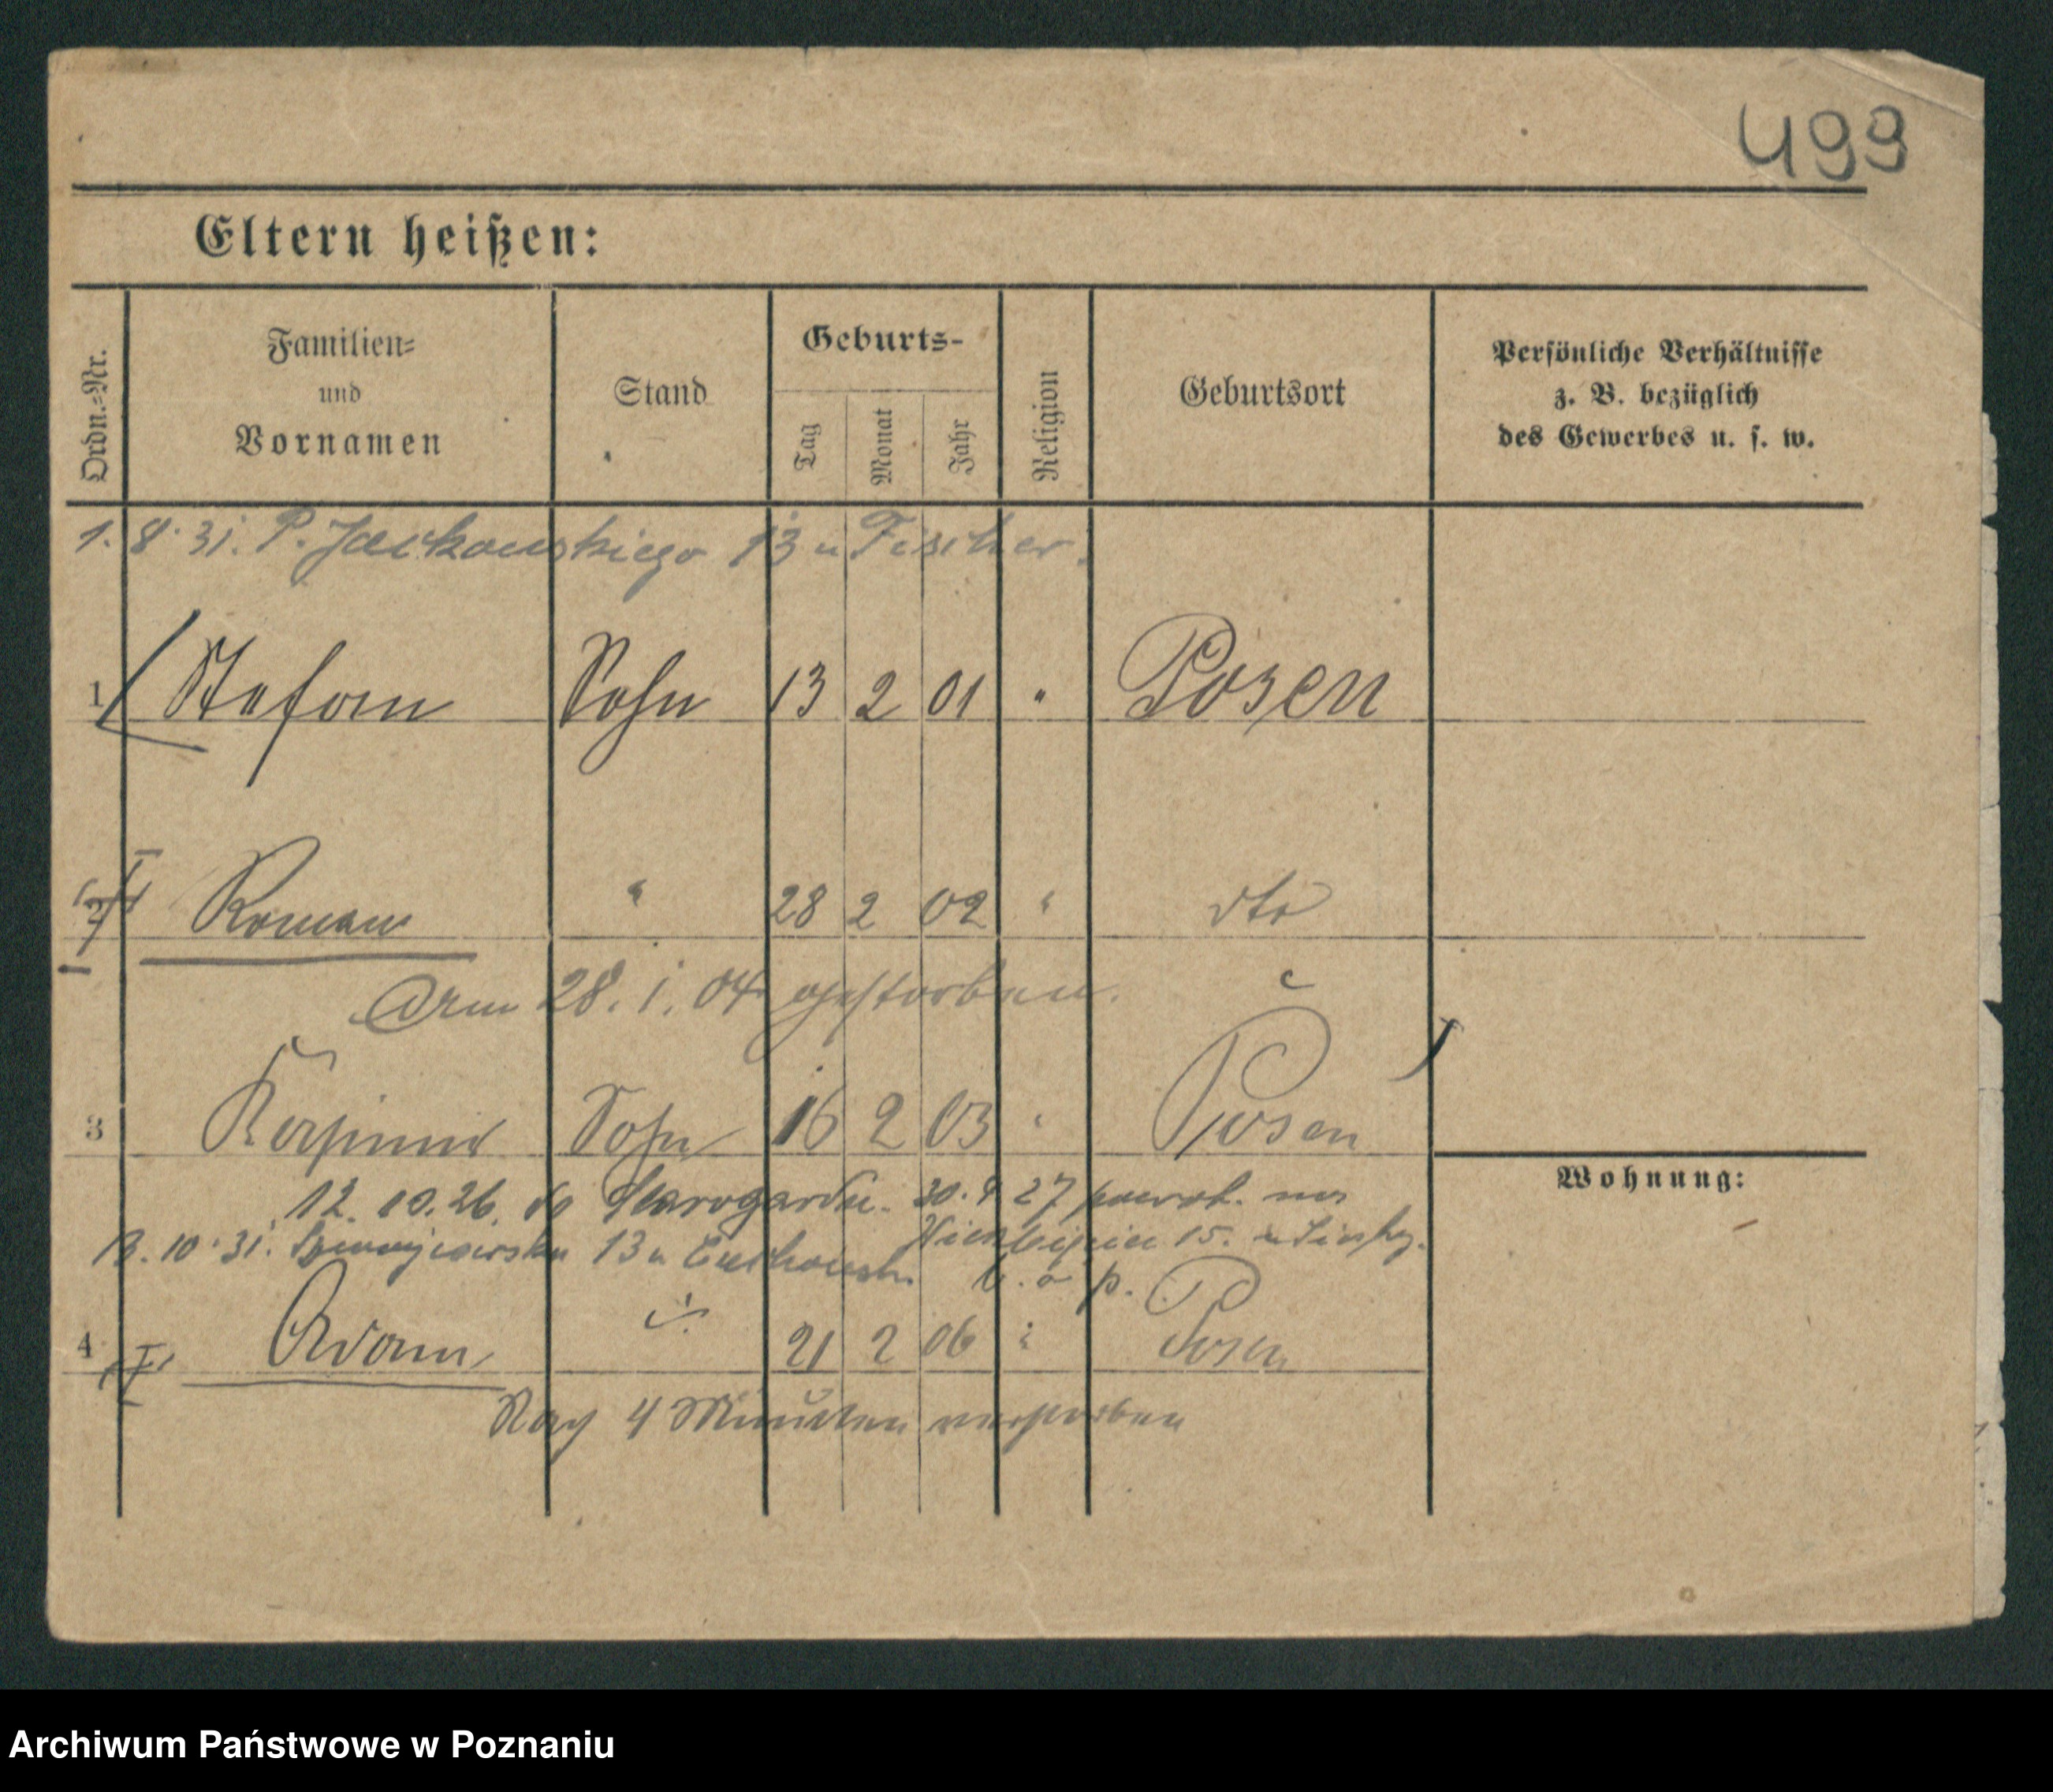 499
Eltern heißen:
Ordn.-Nr. Familien- und Vornamen Stand Geburts- Tag Monat Jahr Religion Geburtsort Persönliche Verhältnisse z. B. bezüglich des Gewerbes u. s. w.
1. 8. 31. P. Jackowskiego 13 u Fischer.
1 Stefan Sohn 13 2 01 " Posen
2 Roman " 28 2 02 " dto
Am 28. 1. 04 gestorben.
3 Kasimir Sohn 16 2 03 " Posen
Wohnung:
12. 10. 26. do Starogardu. 30. 9 27 powrot. na
13. 10. 31. 13 u 15. u
b. a p.
4 Adam 21 2 06 Posen
Nach 4 Minuten verstorben
Archiwum Państwowe w Poznaniu